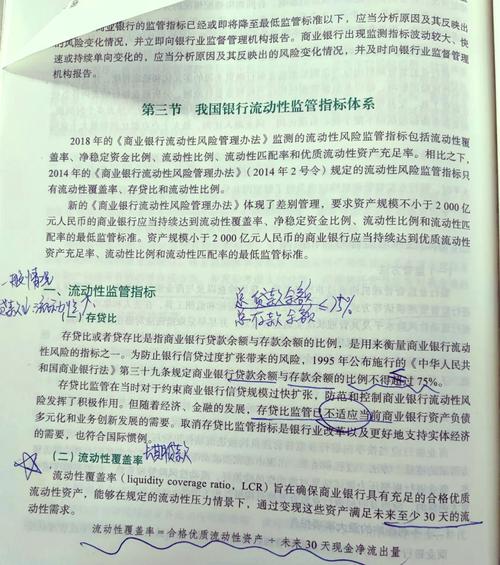 商业银行的监管指标已经或即将降至最低监管标准以下，应当分析原因及其反映出
的风险变化情况，并立即向银行业监督管理机构报告。商业银行出现监测指标波动较大、快
速或持续单向变化的，应当分析原因及其反映出的风险变化情况，并及时向银行业监督管理
机构报告。
第三节 我国银行流动性监管指标体系
2018 年的《商业银行流动性风险管理办法》监测的流动性风险监管指标包括流动性覆
盖率、净稳定资金比例、流动性比例、流动性匹配率和优质流动性资产充足率。相比之下，
2014 年的《商业银行流动性风险管理办法》（2014 年 2 号令）规定的流动性风险监管指标只
有流动性覆盖率、存贷比和流动性比例。
新的《商业银行流动性风险管理办法》体现了差别管理，要求资产规模不小于 2 000 亿
元人民币的商业银行应当持续达到流动性覆盖率、净稳定资金比例、流动性比例和流动性匹
配率的最低监管标准。资产规模小于 2 000 亿元人民币的商业银行应当持续达到优质流动性
资产充足率、流动性比例和流动性匹配率的最低监管标准。
一、流动性监管指标
总贷款余额
总存款余额
<75%
（一）存贷比
存贷比或者贷存比是指商业银行贷款余额与存款余额的比例，是用来衡量商业银行流动
性风险的指标之一。为防止银行信贷过度扩张带来的风险，1995 年公布施行的《中华人民共
和国商业银行法》第三十九条规定商业银行贷款余额与存款余额的比例不得超过 75%。
存贷比监管在当时对于约束商业银行信贷规模过快扩张，防范和控制商业银行流动性风
险发挥了积极作用。但随着经济、金融的发展，存贷比监管已不适应当前商业银行资产负债
多元化和业务创新发展的需要。取消存贷比监管指标是银行业改革以及更好地支持实体经济
的需要，也符合国际惯例。
（二）流动性覆盖率
流动性覆盖率（liquidity coverage ratio，LCR）旨在确保商业银行具有充足的合格优质
流动性资产，能够在规定的流动性压力情景下，通过变现这些资产满足未来至少 30 天的流
动性需求。
流动性覆盖率＝合格优质流动性资产 ÷ 未来 30 天现金净流出量